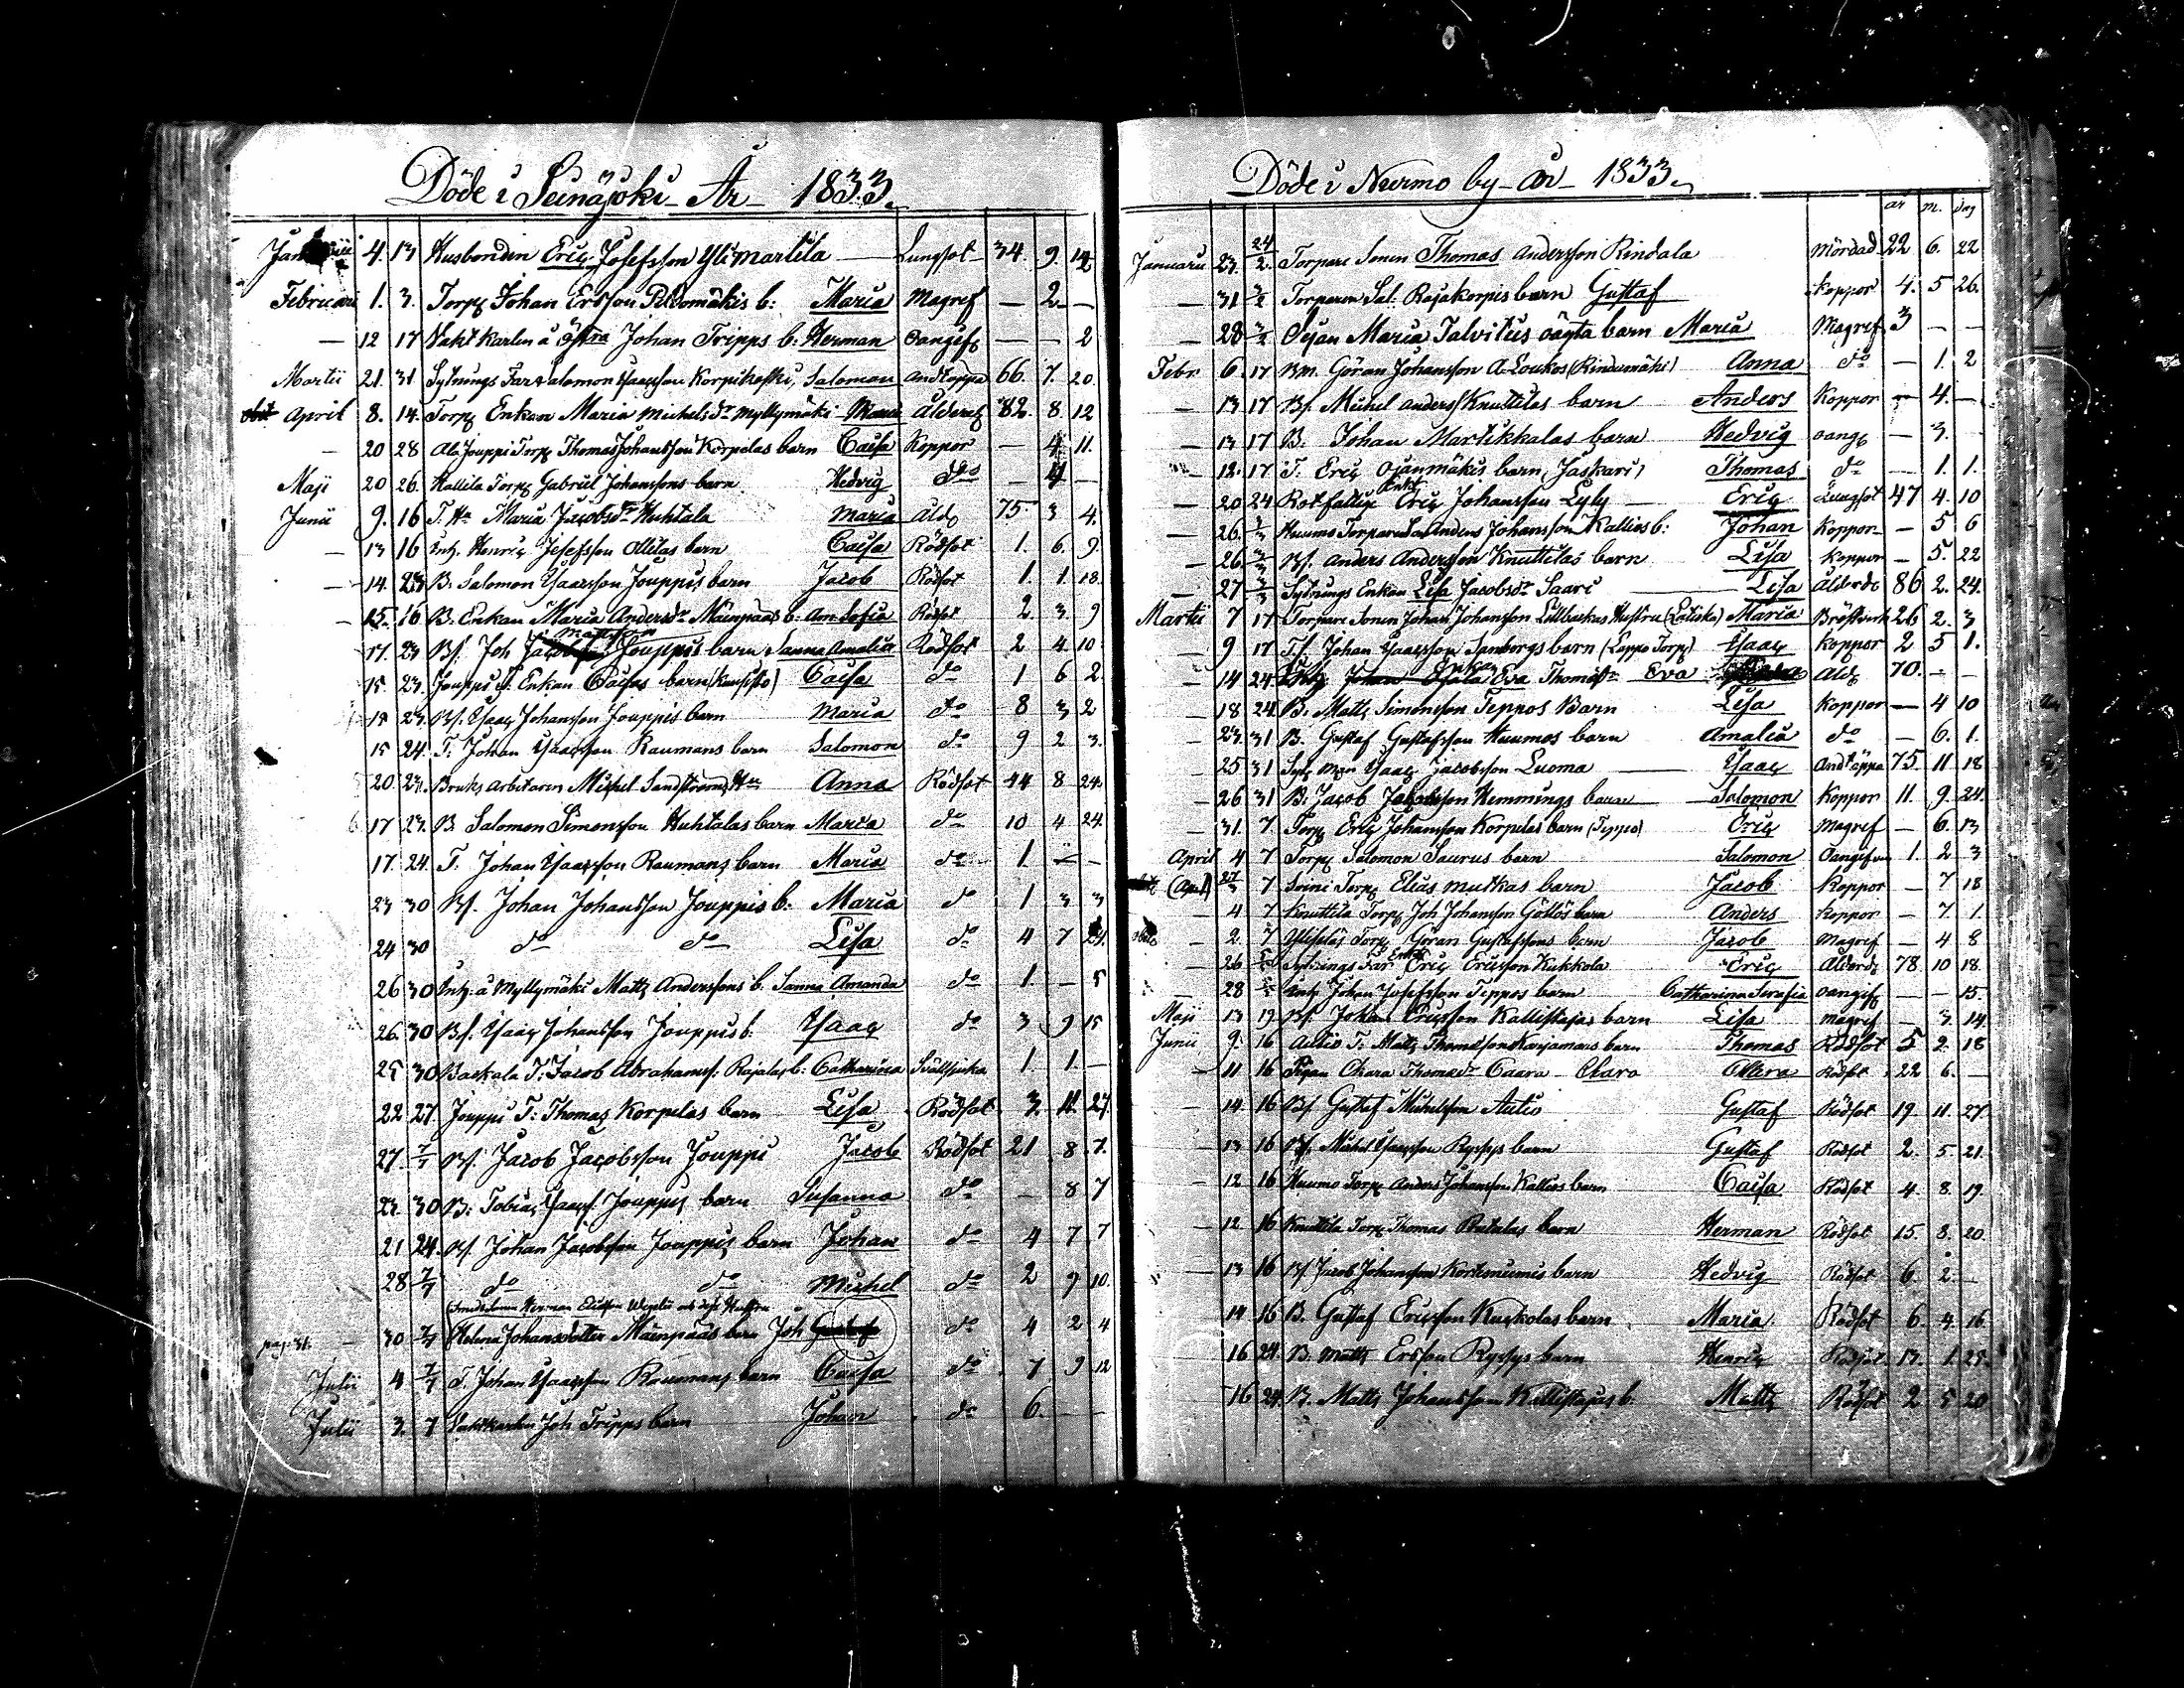 Döde i Seinäjoki - År - 1833.
Januarii 4. 13 Husbonden Eric Josefsson Ylimartila Lungsot 34. 9. 12
Februarii 1. 3. Torp Johan Ersson Peldomäkis b: Maria Magref — 2 —
— 12 17 Vakt karlen å Östra Johan Tripps b: Herman oangif — — 2
Martii 21. 31. Sytnings Far Salomon Isacsson Korpikoski, Salomon andtäppa 66. 7. 20.
April 8. 14. Torp Enkan Maria Michelsdr Myllymäki Maria ålderd 82. 8 12
— 20 28 Ala Jouppi Torp Thomas Johansson Korpelas barn Caisa Koppor — 4 11.
Maji 20 26. Kallila Torp Gabriel Johanssons barn Hedvig do — 4 —
Junii 9. 16 T. Hu Maria Jacobsdr Huhtala Maria Åld 75 3 4.
— 13 16 Inh. Henric Josefsson Ollilas barn Caisa Rödsot 1. 6. 9.
— 14. 23 B. Salomon Isacsson Jouppis barn Jacob Rödsot 1. 1. 18.
— 15. 16 B. Enkan Maria Andersdr Mäenpääs b: Ann Sofia Rödsot 2 3. 9
17. 23 Bs. Joh Mattsson Jouppis barn Sanna Amalia Rödsot 2 4 10
15. 23. Jouppi T. Enkan Caisas barn (Kuusisto) Caisa do 1 6 2.
15 23. Bs. Isaac Johansson Jouppis barn Maria do 8 3 2
15 24. T. Johan Isacsson Raumans barn Salomon do 9 2 3.
20. 23. Bruks arbetaren Michel Sandströms Hu Anna Rödsot 44 8 24.
17 23. B. Salomon Simonsson Huhtalas barn Maria do 10 4 24.
17. 24. T. Johan Isacsson Raumans barn Maria do 1. — —
23 30 Bs. Johan Johansson Jouppis b: Maria do 1 3 3
24 30 do do Lisa do 4 7 24.
26 30 Inh. å Myllymäki Matts Anderssons b. Sanna Amanda do 1. — 5
26. 30 Bs. Isaac Johansson Jouppis b: Isaac do 3 9 15
25 30 Backala T: Jacob Abrahams: Rajalas b: Catharina Svällsjuka 1. 1. —
22 27 Jouppi T: Thomas Korpelas barn Lisa Rödsot 3. 11. 27.
27. 7/7 Bs. Jacob Jacobsson Jouppi Jacob Rödsot 21 8. 7.
23. 30 B: Tobias Isacs. Jouppis barn Susanna do — 8 7
21 24. Bs. Johan Jacobsson Jouppis barn Johan do 4 7 7
28 7/7 do do Michel do 2 9 10.
(Smedsonen Herman Ericsson Wegelii och dess Hustru
pag: 31. — 30 7/7 Helena Johansdotter Mäenpääs barn Joh do 4 2 4
Julii 4 7/7 T. Johan Isacsson Raumans barn Caisa do 7 9 12
Julii 3. 7 Vaktkarlen Joh Tripps barn Johan do 6. — —
Döde i Nurmo by - år - 1833.
år m. dag
Januarii 23. 24/2. Torpare Sonen Thomas Andersson Rindala Mördad 22 6. 22
— 31 3/2 Torparen Sal. Rajakorpis barn Gustaf Koppor 4. 5 26.
— 28 3/2 Pigan Maria Talvitus oägta barn Maria Magref 3 — —
Febr. 6. 17 Bm. Göran Johansson A-Loukos (Rindamäki) Anna do — 1. 2
— 13 17 Bs. Michel Anders: Knuttilas barn Anders Koppor — 4. —
— 13 17 B. Johan Martikkalas barn Hedvig oang — 3. —
— 12. 17 T. Eric Ojanmäkis barn (Jaskari) Thomas do — 1. 1.
— 20 24 Rotfattige Enkl Eric Johansson Lyly Eric Lungsot 47 4. 10
— 26. 3/3 Huumo Torparen Anders Johansson Kallios b: Johan Koppor — 5 6
— 26. 3/3 Bs. Anders Andersson Knuttilas barn Lisa Koppor — 5. 22
— 27 3/3 Sytnings Enkan Lisa Jacobsdr Saari Lisa Ålderdo 86 2. 24.
Martii 7 17 Torpare Sonen Johan Johansson Lillbackas Hustru Maria Bröstvärk 26 2. 3
— 9 17 T.s. Johan Isacsson Sanbergs barn (Lappo Torp) Isaac Koppor 2 5 1.
— 14 24 Enkan Eva Thomasdr Eva Åld 70. — —
— 18 24. B. Matts Simonsson Teppos Barn Lisa Koppor — 4 10
— 23. 31 B. Gustaf Gustafsson Huumos barn Amalia do — 6. 1.
— 25 31 Sytn man Isaac Jacobsson Luoma Isaac Andtäppa 75 11 18
— 26 31 B. Jacob Jacobsson Hemmings barn Salomon Koppor 11. 9. 24.
— 31. 7 Torp Eric Johansson Korpelas barn (Teppo) Eric Magref — 6. 13
April 4 7 Torp Salomon Saurus barn Salomon Oangifven 1. 2 3
(April) 27/3 7 Soini Torp Elias Mutkas barn Jacob Koppor — 7 18
— 4 7 Knuttila Torp Joh Johansson Götlös barn Anders Koppor — 7. 1.
— 2 7 Torp Göran Gustafssons barn Jacob Magref — 4 8
— 26 Sytnings Far Enkl Eric Ericsson Kukkola Eric Ålderd 78 10 18.
— 28 Inh Johan Josefsson Teppos barn Catharina Serafia oangif — — 15.
Maji 13 19 Bs. Johan Ericsson Kallistajas barn Lisa Magref — 3. 14.
Junii 9. 16 Autio T: Matts Thomasson Karjamaas barn Thomas Rödsot 5 2. 18
— 11 16 Pigan Chara Thomasdr Caara - Clara Rödsot 22 6. —
— 14 16 Bs. Gustaf Michelsson Autio Gustaf Rödsot 19. 11. 27
— 13 16 Bs. Michel Isacsson Ryssys barn Gustaf Rödsot 2. 5. 21.
— 12 16 Huumo Torp Anders Johansson Kallios barn Caisa Rödsot 4. 8. 19.
— 12 16 Knuttila Torp Thomas Rintalas barn Herman Rödsot 15. 8. 20.
— 13 16 Bs. Jacob Johansson Kortesniemis barn Hedvig Rödsot 6. 2. —
14 16 B. Gustaf Ericsson Kuckolas barn Maria Rödsot 6 4. 16.
— 16 24. B. Matts Ersson Ryssys barn Henric Rödsot 13. 1. 25.
— 16 24. B. Matts Johansson Kallistajas b. Matts Rödsot 2 5 20